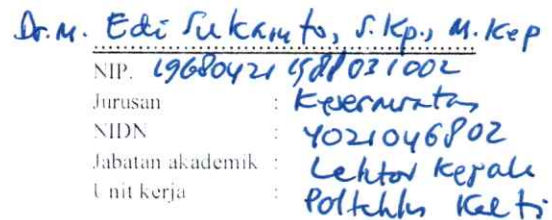 Dr. M. Edi Sukamto, S.Kp., M.Kep
NIP. 196804211988031002
Jurusan : Keperawatan
NIDN : 4021046802
Jabatan akademik : Lektor Kepala
Unit kerja : Poltekkes Kaltim